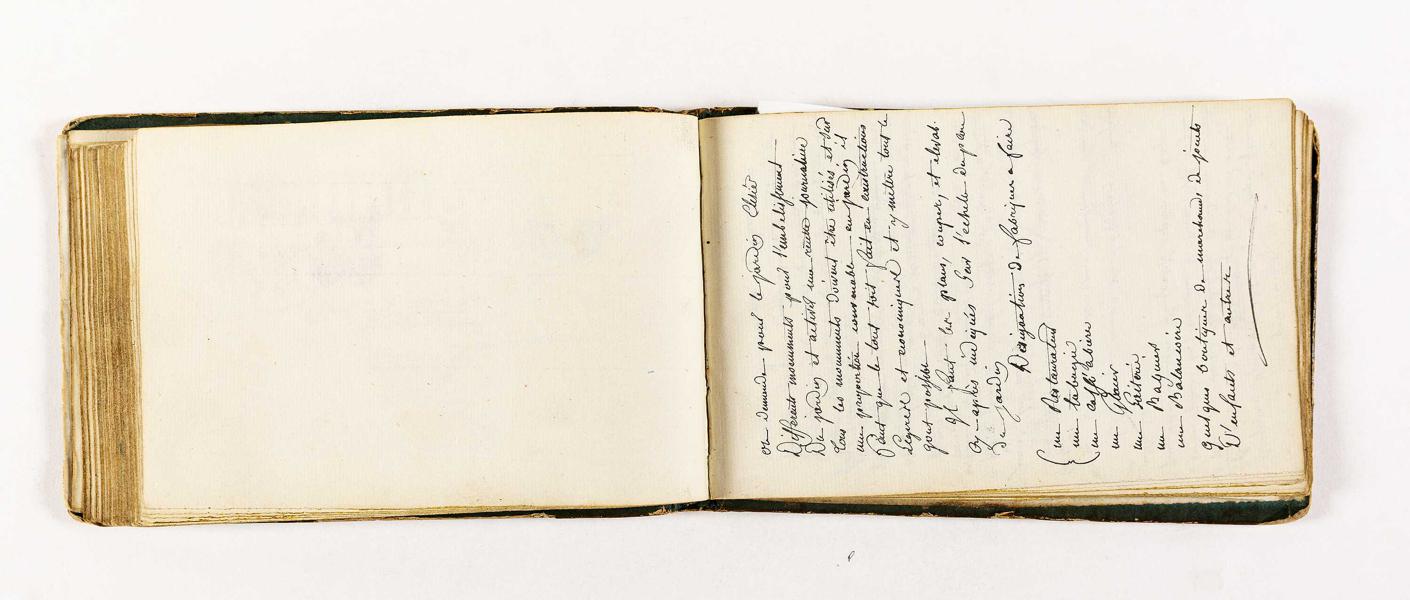 on demande pour le jardin
Differents monuments pour l'embelissement
Du jardin et activer une recette journaliere
tous les monuments doivent être utilisés et sur
une proportion convenable au jardin il
faut que le tout soit fait en constructions
legerere et economiques et y mettre tout le
gout possible
il faut les plans, coupes, et elevat.
cy-après indiqués sur l'echelle du plan
du jardin
Designation des fabriques a faire
un Restaurateur
une tabagie
un caffé
un Glacier
une Laiterie
un Baguier
une Balancoire
quelques boutiques de marchands de jouets
D'enfants et autres